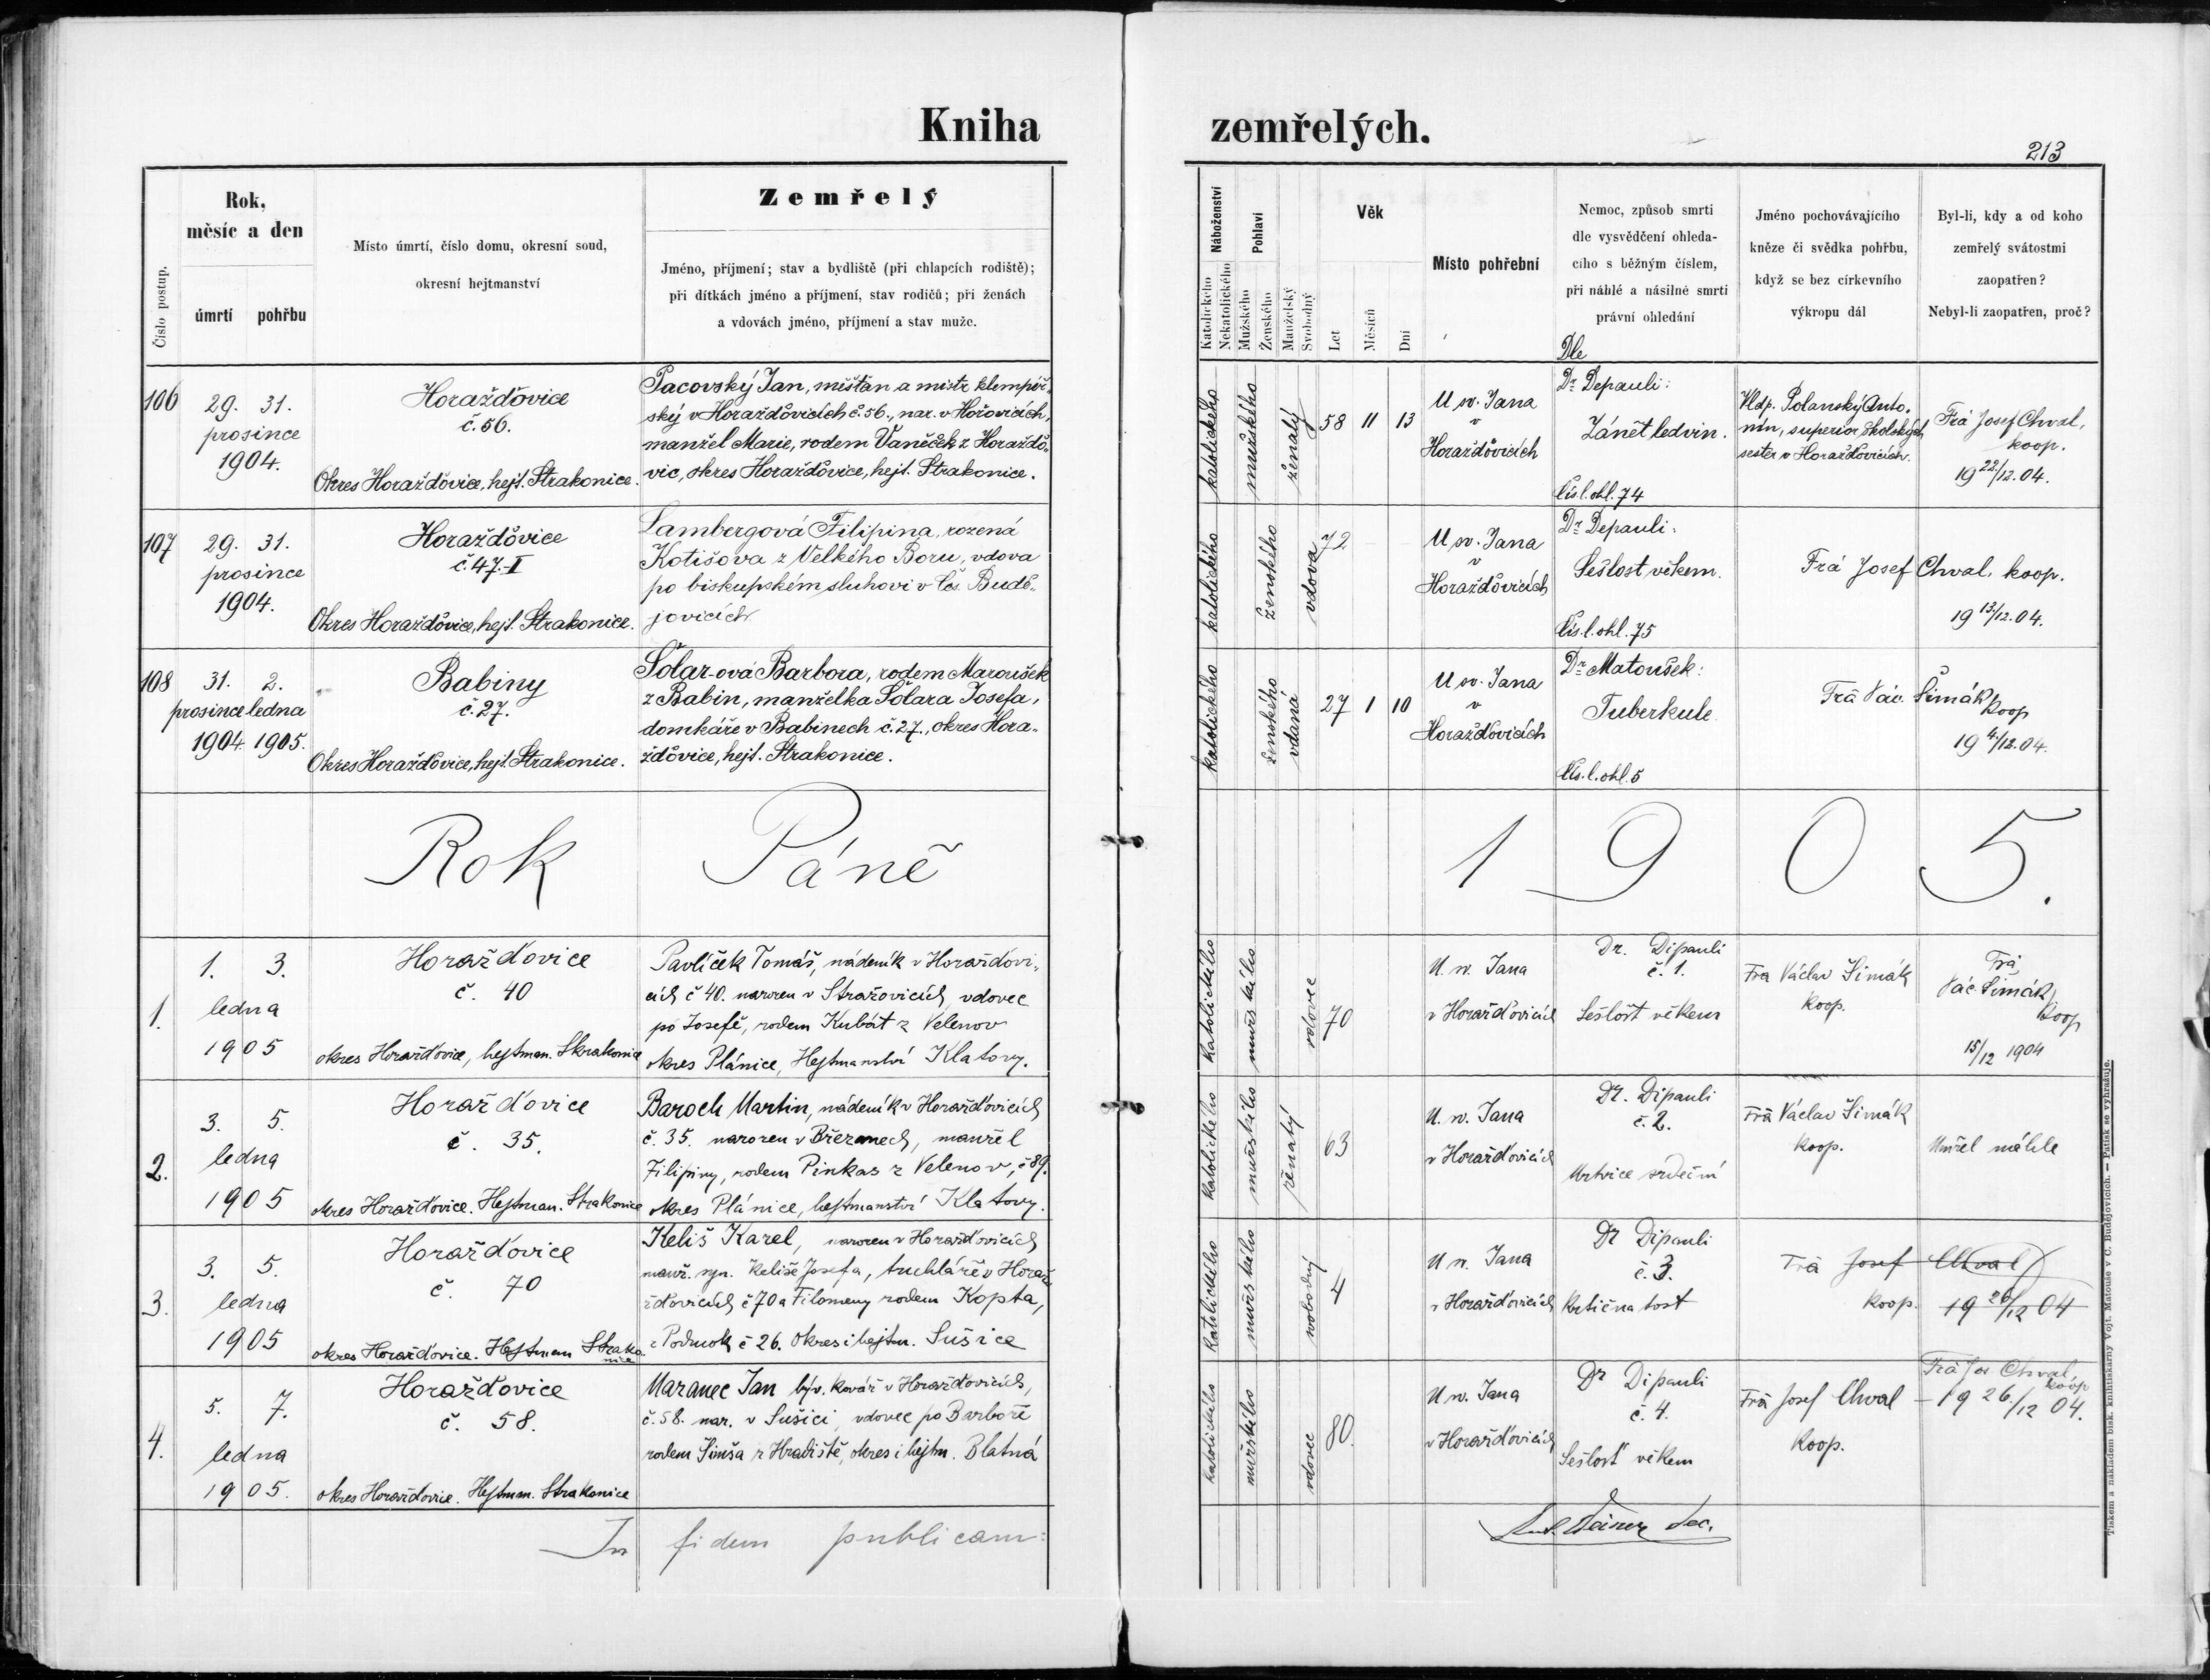 Kniha zemřelých.
213
Číslo postup.
Rok,
měsíc a den
úmrtí pohřbu
Místo úmrtí, číslo domu, okresní soud,
okresní hejtmanství
Zemřelý
Jméno, příjmení; stav a bydliště (při chlapcích rodiště);
při dítkách jméno a příjmení, stav rodičů; při ženách
a vdovách jméno, příjmení a stav muže.
Náboženství
Katolického
Nekatolického
Pohlaví
Mužského
Ženského
Manželský
Svobodný
Věk
Let
Měsíců
Dní
Místo pohřební
Nemoc, způsob smrti
dle vysvědčení ohleda-
cího s běžným číslem,
při náhlé a násilné smrti
právní ohledání
Jméno pochovávajícího
kněze či svědka pohřbu,
když se bez církevního
výkropu dál
Byl-li, kdy a od koho
zemřelý svátostmi
zaopatřen?
Nebyl-li zaopatřen, proč?
106
29. 31.
prosince
1904.
Horažďovice
č. 56.
Okres Horažďovice, hejt. Strakonice.
Pacovský Jan, měšťan a mistr klempíř-
ský v Horažďovicích č. 56., nar. v Hořovicích,
manžel Marie, rodem Vaněček z Horaždo-
vic, okres Horažďovice, hejt. Strakonice.
katolického
mužského
ženatý
58 11 13
U sv. Jana
v
Horažďovicích
Dle
Dr. Depauli:
Zánět ledvin.
Čís. l. ohl. 74
Vldp. Polanský Anto-
nín, superior školských
sester v Horažďovicích.
Frá Josef Chval,
koop.
19 22/12. 04.
107
29. 31.
prosince
1904.
Horažďovice
č. 47.-II
Okres Horažďovice, hejt. Strakonice.
Lambergová Filipina, rozená
Kotišova z Velkého Boru, vdova
po biskupském sluhovi v Čes. Budě-
jovicích
katolického
ženského
vdova
72
U sv. Jana
v
Horažďovicích
Dr. Depauli:
Sešlost věkem.
Čís. l. ohl. 75
Frá Josef Chval, koop.
19 13/12. 04.
108
31. 2.
prosince ledna
1904 1905.
Babiny
č. 27.
Okres Horažďovice, hejt. Strakonice.
Šolar-ová Barbora, rodem Maroušek
z Babin, manželka Šolara Josefa,
domkáře v Babinech č. 27., okres Hora-
žďovice, hejt. Strakonice.
katolického
ženského
vdaná
27 1 10
U sv. Jana
v
Horažďovicích
Dr. Matoušek:
Tuberkule
Čís. l. ohl. 5
Frá Vác. Šimák
koop
19 4/12. 04.
Rok Páně 1905.
1.
1. 3.
ledna
1905
Horažďovice
č. 40
okres Horažďovice, hejtman. Strakonice
Pavlíček Tomáš, nádeník v Horažďovi-
cích č 40. narozen v Stražovicích, vdovec
po Josefě, rodem Kubát z Velenov
okres Plánice, Hejtmanství Klatovy.
katolického
mužského
vdovec
70
U sv. Jana
v Horažďovicích
Dr. Dipauli
č. 1.
Sešlost věkem
Fra Václav Šimák
koop.
Frá
Vác. Šimák,
koop
15/12 1904
2.
3. 5.
ledna
1905
Horažďovice
č. 35.
okres Horažďovice. Hejtman. Strakonice
Baroch Martin, nádeník v Horažďovicích
č. 35. narozen v Břežanech, manžel
Filipiny, rodem Pinkas z Velenov, č 89.
okres Plánice, hejtmanství Klatovy.
katolického
mužského
ženatý
63
U sv. Jana
v Horažďovicích
Dr. Dipauli
č. 2.
Mrtvice srdeční
Frá Václav Šimák
koop.
Umřel náhle
3.
3. 5.
ledna
1905
Horažďovice
č. 70
okres Horažďovice. Hejtman Strako-
nice
Keliš Karel, narozen v Horažďovicích
manž. syn. Keliše Josefa, truhláře v Hora-
žďovicích č 70 a Filomeny rodem Kopta,
z Podmok č 26. Okres i hejtm. Sušice
katolického
mužského
svobodný
4
U sv. Jana
v Horažďovicích
Dr Dipauli
č. 3.
Krtičnatost
Frá Josef Chval
koop.
19 26/12 04
4.
5. 7.
ledna
1905.
Horažďovice
č. 58.
okres Horažďovice. Hejtman. Strakonice
Mazanec Jan býv. kovář v Horažďovicích,
č. 58. nar. v Sušici, vdovec po Barboře
rodem Šimša z Hradiště, okres i hejtm. Blatná
katolického
mužského
vdovec
80.
U sv. Jana
v Horažďovicích
Dr Dipauli
č. 4.
Sešlosť věkem
Frá Josef Chval
koop.
Frá Jos Chval,
koop
19 26./12 04.
In fidem publicam:
Tiskem a nákladem bisk. knihtiskárny Vojt. Matouše v Č. Budějovicích. — Patisk se vyhražuje.